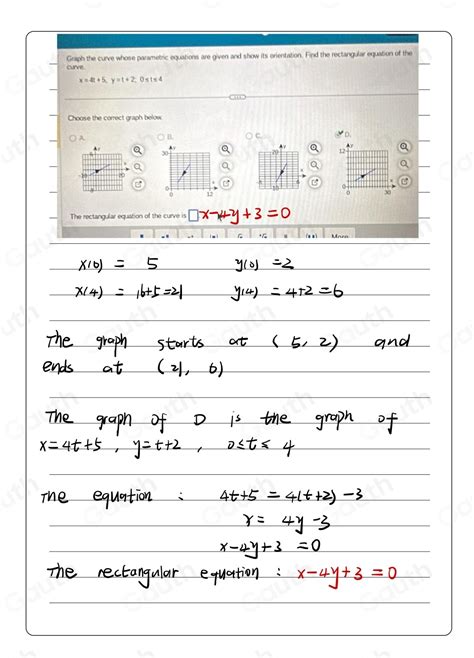 Graph the curve whose parametric equations are given and show its orientation. Find the rectangular equation of the
curve.
x = 4t + 5, y = t + 2; 0 ≤ t ≤ 4
Choose the correct graph below.
A. B. C. D.
The rectangular equation of the curve is x-4y+3=0
More
x(0) = 5 y(0) = 2
x(4) = 16+5=21 y(4) = 4+2=6
The graph starts at (5, 2) and
ends at (21, 6)
The graph of D is the graph of
x=4t+5, y=t+2, 0≤t≤4
The equation : 4t+5 = 4(t+2)-3
x= 4y-3
x-4y+3 =0
The rectangular equation : x-4y+3=0